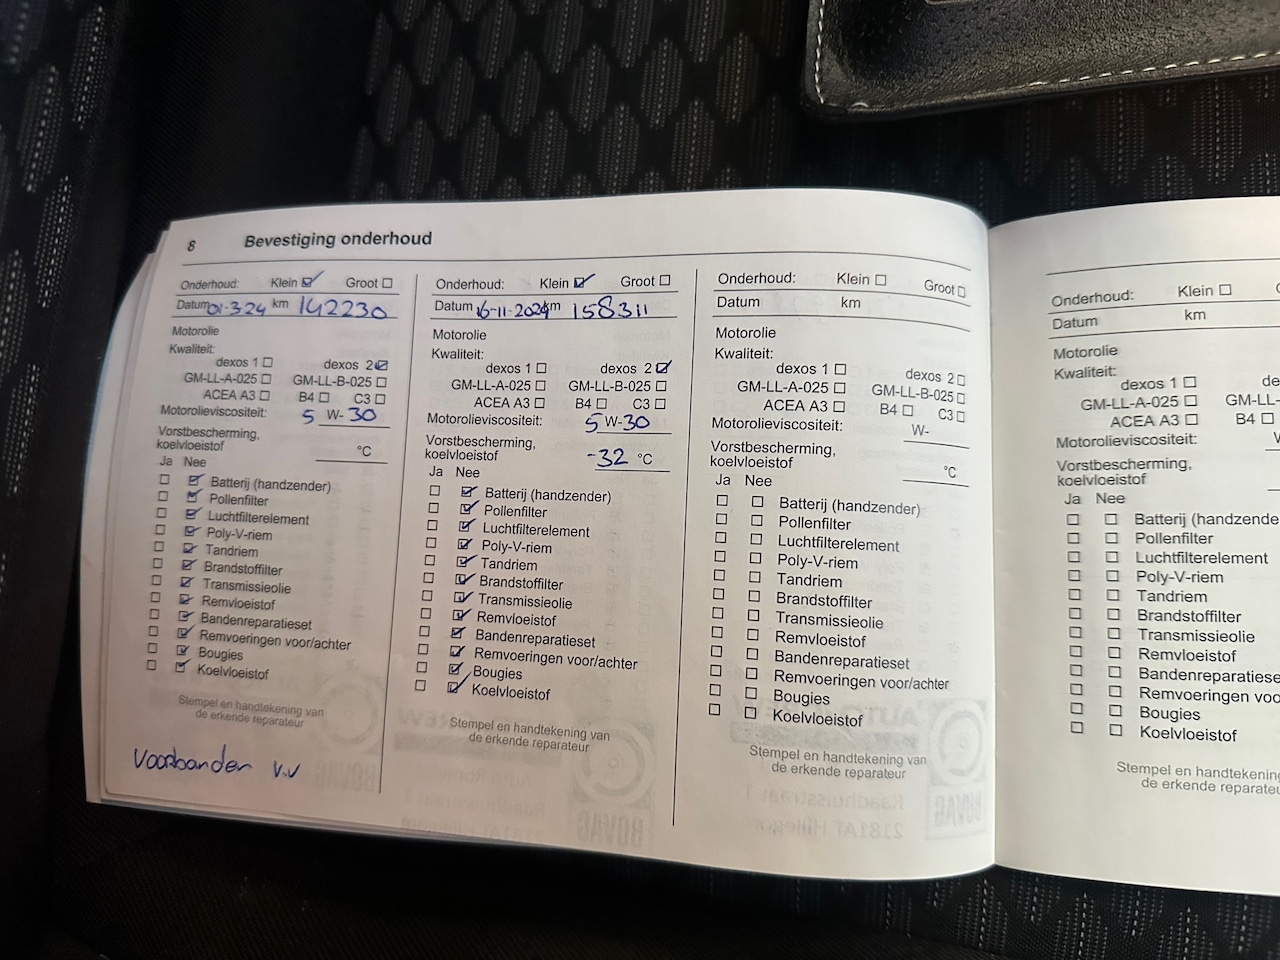 8 Bevestiging onderhoud
Onderhoud: Klein ☑ Groot ☐
Datum 01-3-24 km 142230
Motorolie
Kwaliteit:
dexos 1 ☐ dexos 2 ☑
GM-LL-A-025 ☐ GM-LL-B-025 ☐
ACEA A3 ☐ B4 ☐ C3 ☐
Motorolieviscositeit: 5 W- 30
Vorstbescherming,
koelvloeistof °C
Ja Nee
☐ ☑ Batterij (handzender)
☐ ☑ Pollenfilter
☐ ☑ Luchtfilterelement
☐ ☑ Poly-V-riem
☐ ☑ Tandriem
☐ ☑ Brandstoffilter
☐ ☑ Transmissieolie
☐ ☑ Remvloeistof
☐ ☑ Bandenreparatieset
☐ ☑ Remvoeringen voor/achter
☐ ☑ Bougies
☐ ☑ Koelvloeistof
Stempel en handtekening van
de erkende reparateur
Voorbanden V.V
Onderhoud: Klein ☑ Groot ☐
Datum 16-11-2024 km 158311
Motorolie
Kwaliteit:
dexos 1 ☐ dexos 2 ☑
GM-LL-A-025 ☐ GM-LL-B-025 ☐
ACEA A3 ☐ B4 ☐ C3 ☐
Motorolieviscositeit: 5 W-30
Vorstbescherming,
koelvloeistof -32 °C
Ja Nee
☐ ☑ Batterij (handzender)
☐ ☑ Pollenfilter
☐ ☑ Luchtfilterelement
☐ ☑ Poly-V-riem
☐ ☑ Tandriem
☐ ☑ Brandstoffilter
☐ ☑ Transmissieolie
☐ ☑ Remvloeistof
☐ ☑ Bandenreparatieset
☐ ☑ Remvoeringen voor/achter
☐ ☑ Bougies
☐ ☑ Koelvloeistof
Stempel en handtekening van
de erkende reparateur
Onderhoud: Klein ☐ Groot ☐
Datum km
Motorolie
Kwaliteit:
dexos 1 ☐ dexos 2 ☐
GM-LL-A-025 ☐ GM-LL-B-025 ☐
ACEA A3 ☐ B4 ☐ C3 ☐
Motorolieviscositeit: W-
Vorstbescherming,
koelvloeistof °C
Ja Nee
☐ ☐ Batterij (handzender)
☐ ☐ Pollenfilter
☐ ☐ Luchtfilterelement
☐ ☐ Poly-V-riem
☐ ☐ Tandriem
☐ ☐ Brandstoffilter
☐ ☐ Transmissieolie
☐ ☐ Remvloeistof
☐ ☐ Bandenreparatieset
☐ ☐ Remvoeringen voor/achter
☐ ☐ Bougies
☐ ☐ Koelvloeistof
Stempel en handtekening van
de erkende reparateur
Onderhoud: Klein ☐
Datum km
Motorolie
Kwaliteit:
dexos 1 ☐ de
GM-LL-A-025 ☐ GM-LL-
ACEA A3 ☐ B4 ☐
Motorolieviscositeit:
Vorstbescherming,
koelvloeistof
Ja Nee
☐ ☐ Batterij (handzende
☐ ☐ Pollenfilter
☐ ☐ Luchtfilterelement
☐ ☐ Poly-V-riem
☐ ☐ Tandriem
☐ ☐ Brandstoffilter
☐ ☐ Transmissieolie
☐ ☐ Remvloeistof
☐ ☐ Bandenreparatiese
☐ ☐ Remvoeringen voo
☐ ☐ Bougies
☐ ☐ Koelvloeistof
Stempel en handtekening
de erkende reparateu